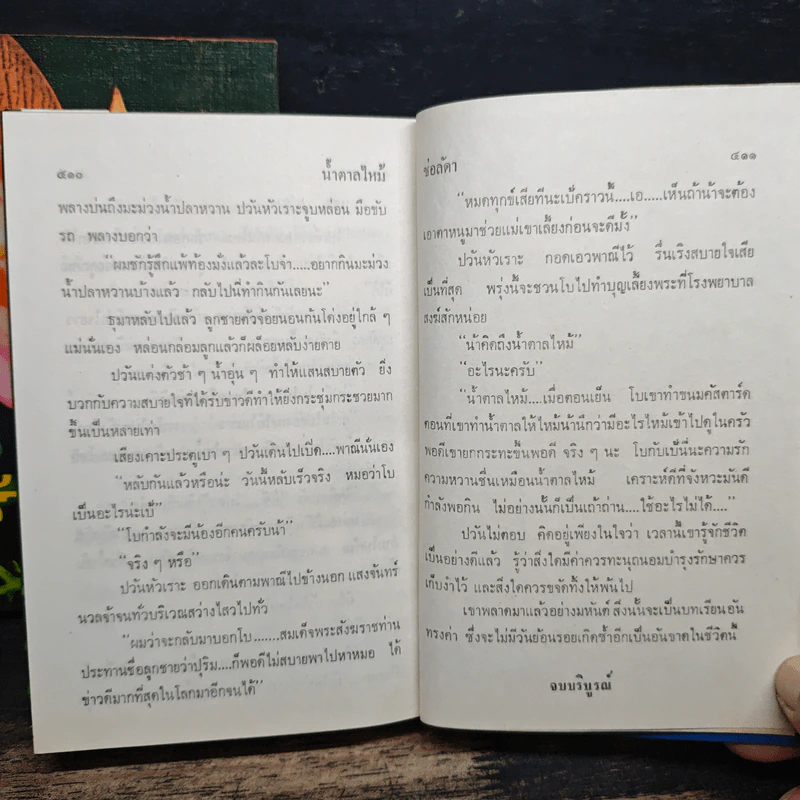 ๕๑๐ น้ำตาลไหม้
พลางบ่นถึงมะม่วงน้ำปลาหวาน ปวันหัวเราะจูบหล่อน มือขับ
รถ พลางบอกว่า
"ผมชักรู้สึกแพ้ท้องมั่งแล้วละโบจ๋า.....อยากกินมะม่วง
น้ำปลาหวานบ้างแล้ว กลับไปนี่ทำกินกันเลยนะ"
ธุมาหลับไปแล้ว ลูกชายตัวจ้อยนอนก้นโด่งอยู่ใกล้ ๆ
แม่นั่นเอง หล่อนกล่อมลูกแล้วก็ผล็อยหลับง่ายดาย
ปวันแต่งตัวช้า ๆ น้ำอุ่น ๆ ทำให้แสนสบายตัว ยิ่ง
บวกกับความสบายใจที่ได้รับข่าวดีทำให้ยิ่งกระชุ่มกระชวยมาก
ขึ้นเป็นหลายเท่า
เสียงเคาะประตูเบา ๆ ปวันเดินไปเปิด....พาณีนั่นเอง
"หลับกันแล้วหรือน่ะ วันนี้หลับเร็วจริง หมอว่าโบ
เป็นอะไรน่ะเป้"
"โบกำลังจะมีน้องอีกคนครับน้า"
"จริง ๆ หรือ"
ปวันหัวเราะ ออกเดินตามพาณีไปข้างนอก แสงจันทร์
นวลจ้าจนทั่วบริเวณสว่างไสวไปทั่ว
"ผมว่าจะกลับมาบอกโบ.......สมเด็จพระสังฆราชท่าน
ประทานชื่อลูกชายว่าปุริม....ก็พอดีไม่สบายพาไปหาหมอ ได้
ข่าวดีมากที่สุดในโลกมาอีกจนได้"
ช่อลัดา ๕๑๑
"หมดทุกข์เสียทีนะเป้คราวนี้....เอ.....เห็นถ้าน้าจะต้อง
เอาตาหนูมาช่วยแม่เขาเลี้ยงก่อนจะดีมั้ง"
ปวันหัวเราะ กอดเอวพาณีไว้ รื่นเริงสบายใจเสีย
เป็นที่สุด พรุ่งนี้จะชวนโบไปทำบุญเลี้ยงพระที่โรงพยาบาล
สงฆ์สักหน่อย
"น้าคิดถึงน้ำตาลไหม้"
"อะไรนะครับ"
"น้ำตาลไหม้....เมื่อตอนเย็น โบเขาทำขนมคัสตาร์ด
ตอนที่เขาทำน้ำตาลให้ไหม้น้านึกว่ามีอะไรไหม้เข้าไปดูในครัว
พอดีเขายกกระทะขึ้นพอดี จริง ๆ นะ โบกับเป้นี่นะความรัก
ความหวานชื่นเหมือนน้ำตาลไหม้ เคราะห์ดีที่จังหวะมันดี
กำลังพอกิน ไม่อย่างนั้นก็เป็นเถ้าถ่าน....ใช้อะไรไม่ได้...."
ปวันไม่ตอบ คิดอยู่เพียงในใจว่า เวลานี้เขารู้จักชีวิต
เป็นอย่างดีแล้ว รู้ว่าสิ่งใดมีค่าควรทะนุถนอมบำรุงรักษาควร
เก็บงำไว้ และสิ่งใดควรขจัดทิ้งให้พ้นไป
เขาพลาดมาแล้วอย่างมหันต์ สิ่งนั้นจะเป็นบทเรียนอัน
ทรงค่า ซึ่งจะไม่มีวันย้อนรอยเกิดซ้ำอีกเป็นอันขาดในชีวิตนี้
จบบริบูรณ์